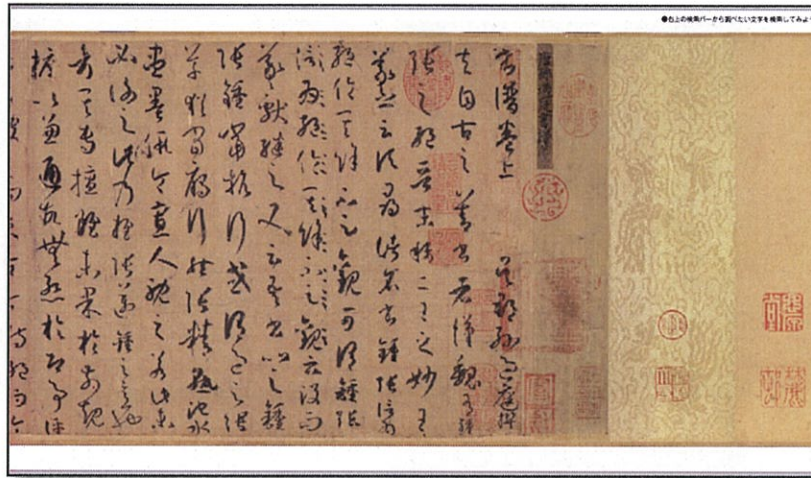 ●右上の検索バーから調べたい文字を検索してみよ
書譜卷上 吳郡孫過庭撰
夫自古之善書者漢魏有鍾
張之絕晉末稱二王之妙王
羲之云頃尋諸名書鍾張信為
絕倫其餘不足觀可謂鍾張
信為絕倫其餘不足觀云沒而
羲獻繼之又云吾書比之鍾
張鍾當抗行或謂過之張
草猶當鴈行然張精熟池水
盡墨假令寡人耽之若此未
必謝之此乃推張邁鍾之意也
考其專擅雖未果於前規
摭以兼通故無慚於即事評